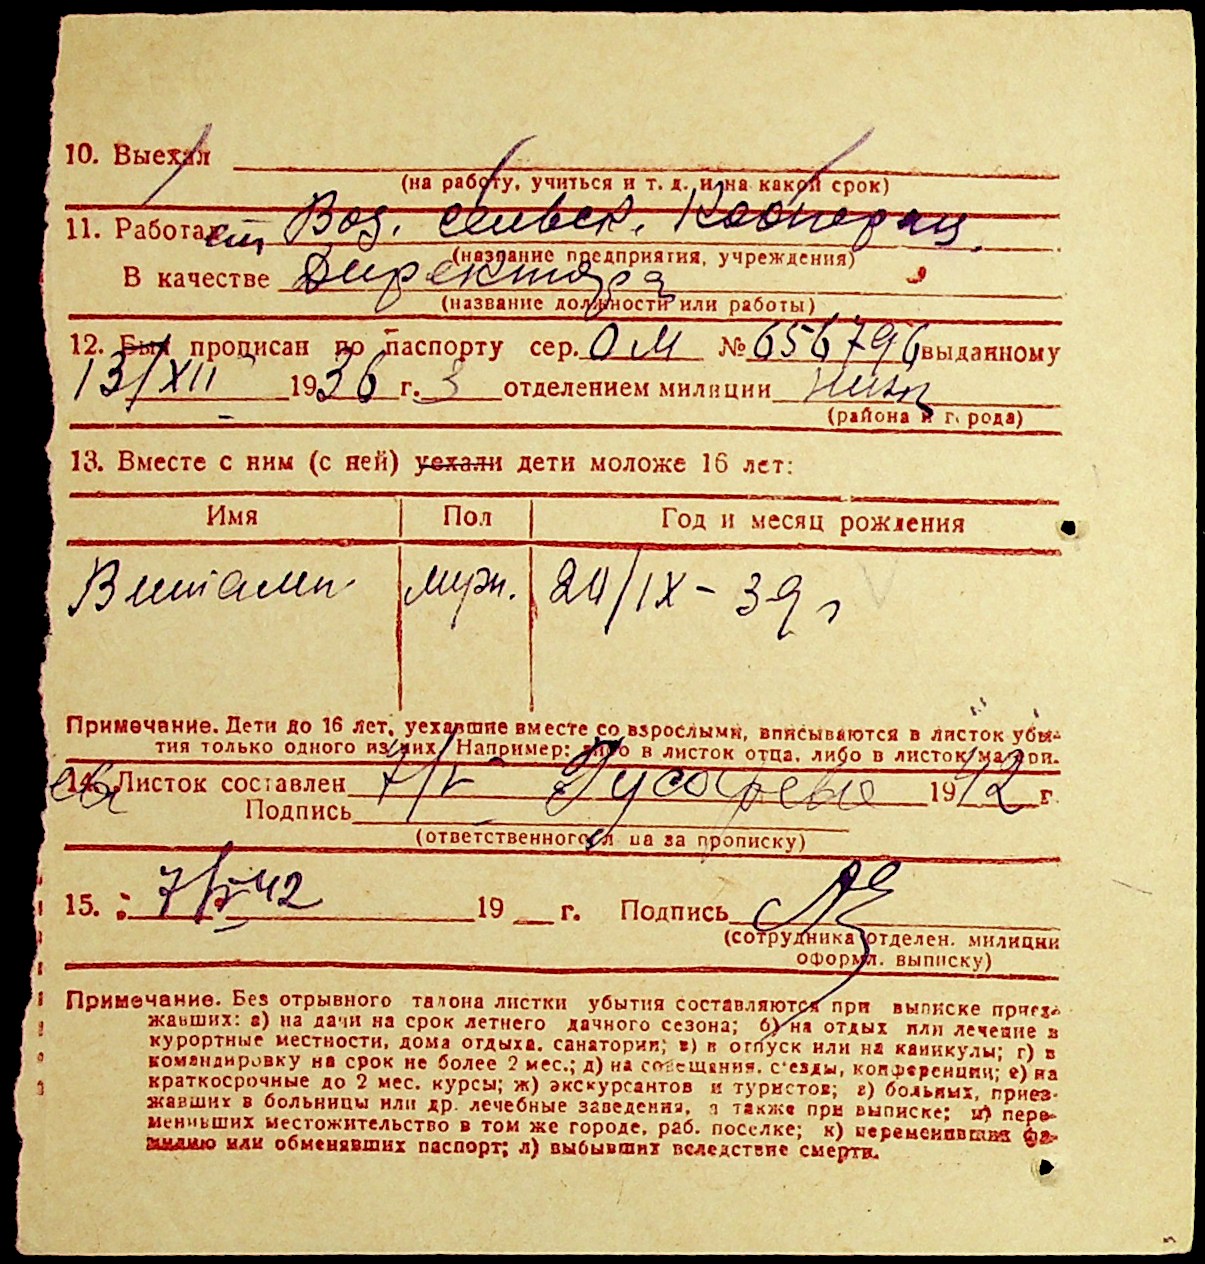 10. Выехал
(на работу, учиться и т. д. и на какой срок)
11. Работает Воз. сельск. Кооперац.
(название предприятия, учреждения)
В качестве Директора
(название должности или работы)
12. Был прописан по паспорту сер. ОМ № 656796 выданному
13/XII 1936 г. 3 отделением милиции
(района и города)
13. Вместе с ним (с ней) уехали дети моложе 16 лет:
Имя Пол Год и месяц рождения
муж. 24/IX - 39 г
Примечание. Дети до 16 лет, уехавшие вместе со взрослыми, вписываются в листок убы-
тия только одного из них. Например: либо в листок отца, либо в листок матери.
14. Листок составлен 7/V 1942 г.
Подпись
(ответственного лица за прописку)
15. 7/V 42 19 г. Подпись
(сотрудника отделен. милиции
оформ. выписку)
Примечание. Без отрывного талона листки убытия составляются при выписке приез-
жавших: а) на дачи на срок летнего дачного сезона; б) на отдых или лечение в
курортные местности, дома отдыха, санатории; в) в отпуск или на каникулы; г) в
командировку на срок не более 2 мес.; д) на совещания, съезды, конференции; е) на
краткосрочные до 2 мес. курсы; ж) экскурсантов и туристов; з) больных, приез-
жавших в больницы или др. лечебные заведения, а также при выписке; и) пере-
менивших местожительство в том же городе, раб. поселке; к) переменивших фа-
милию или обменявших паспорт; л) выбывших вследствие смерти.